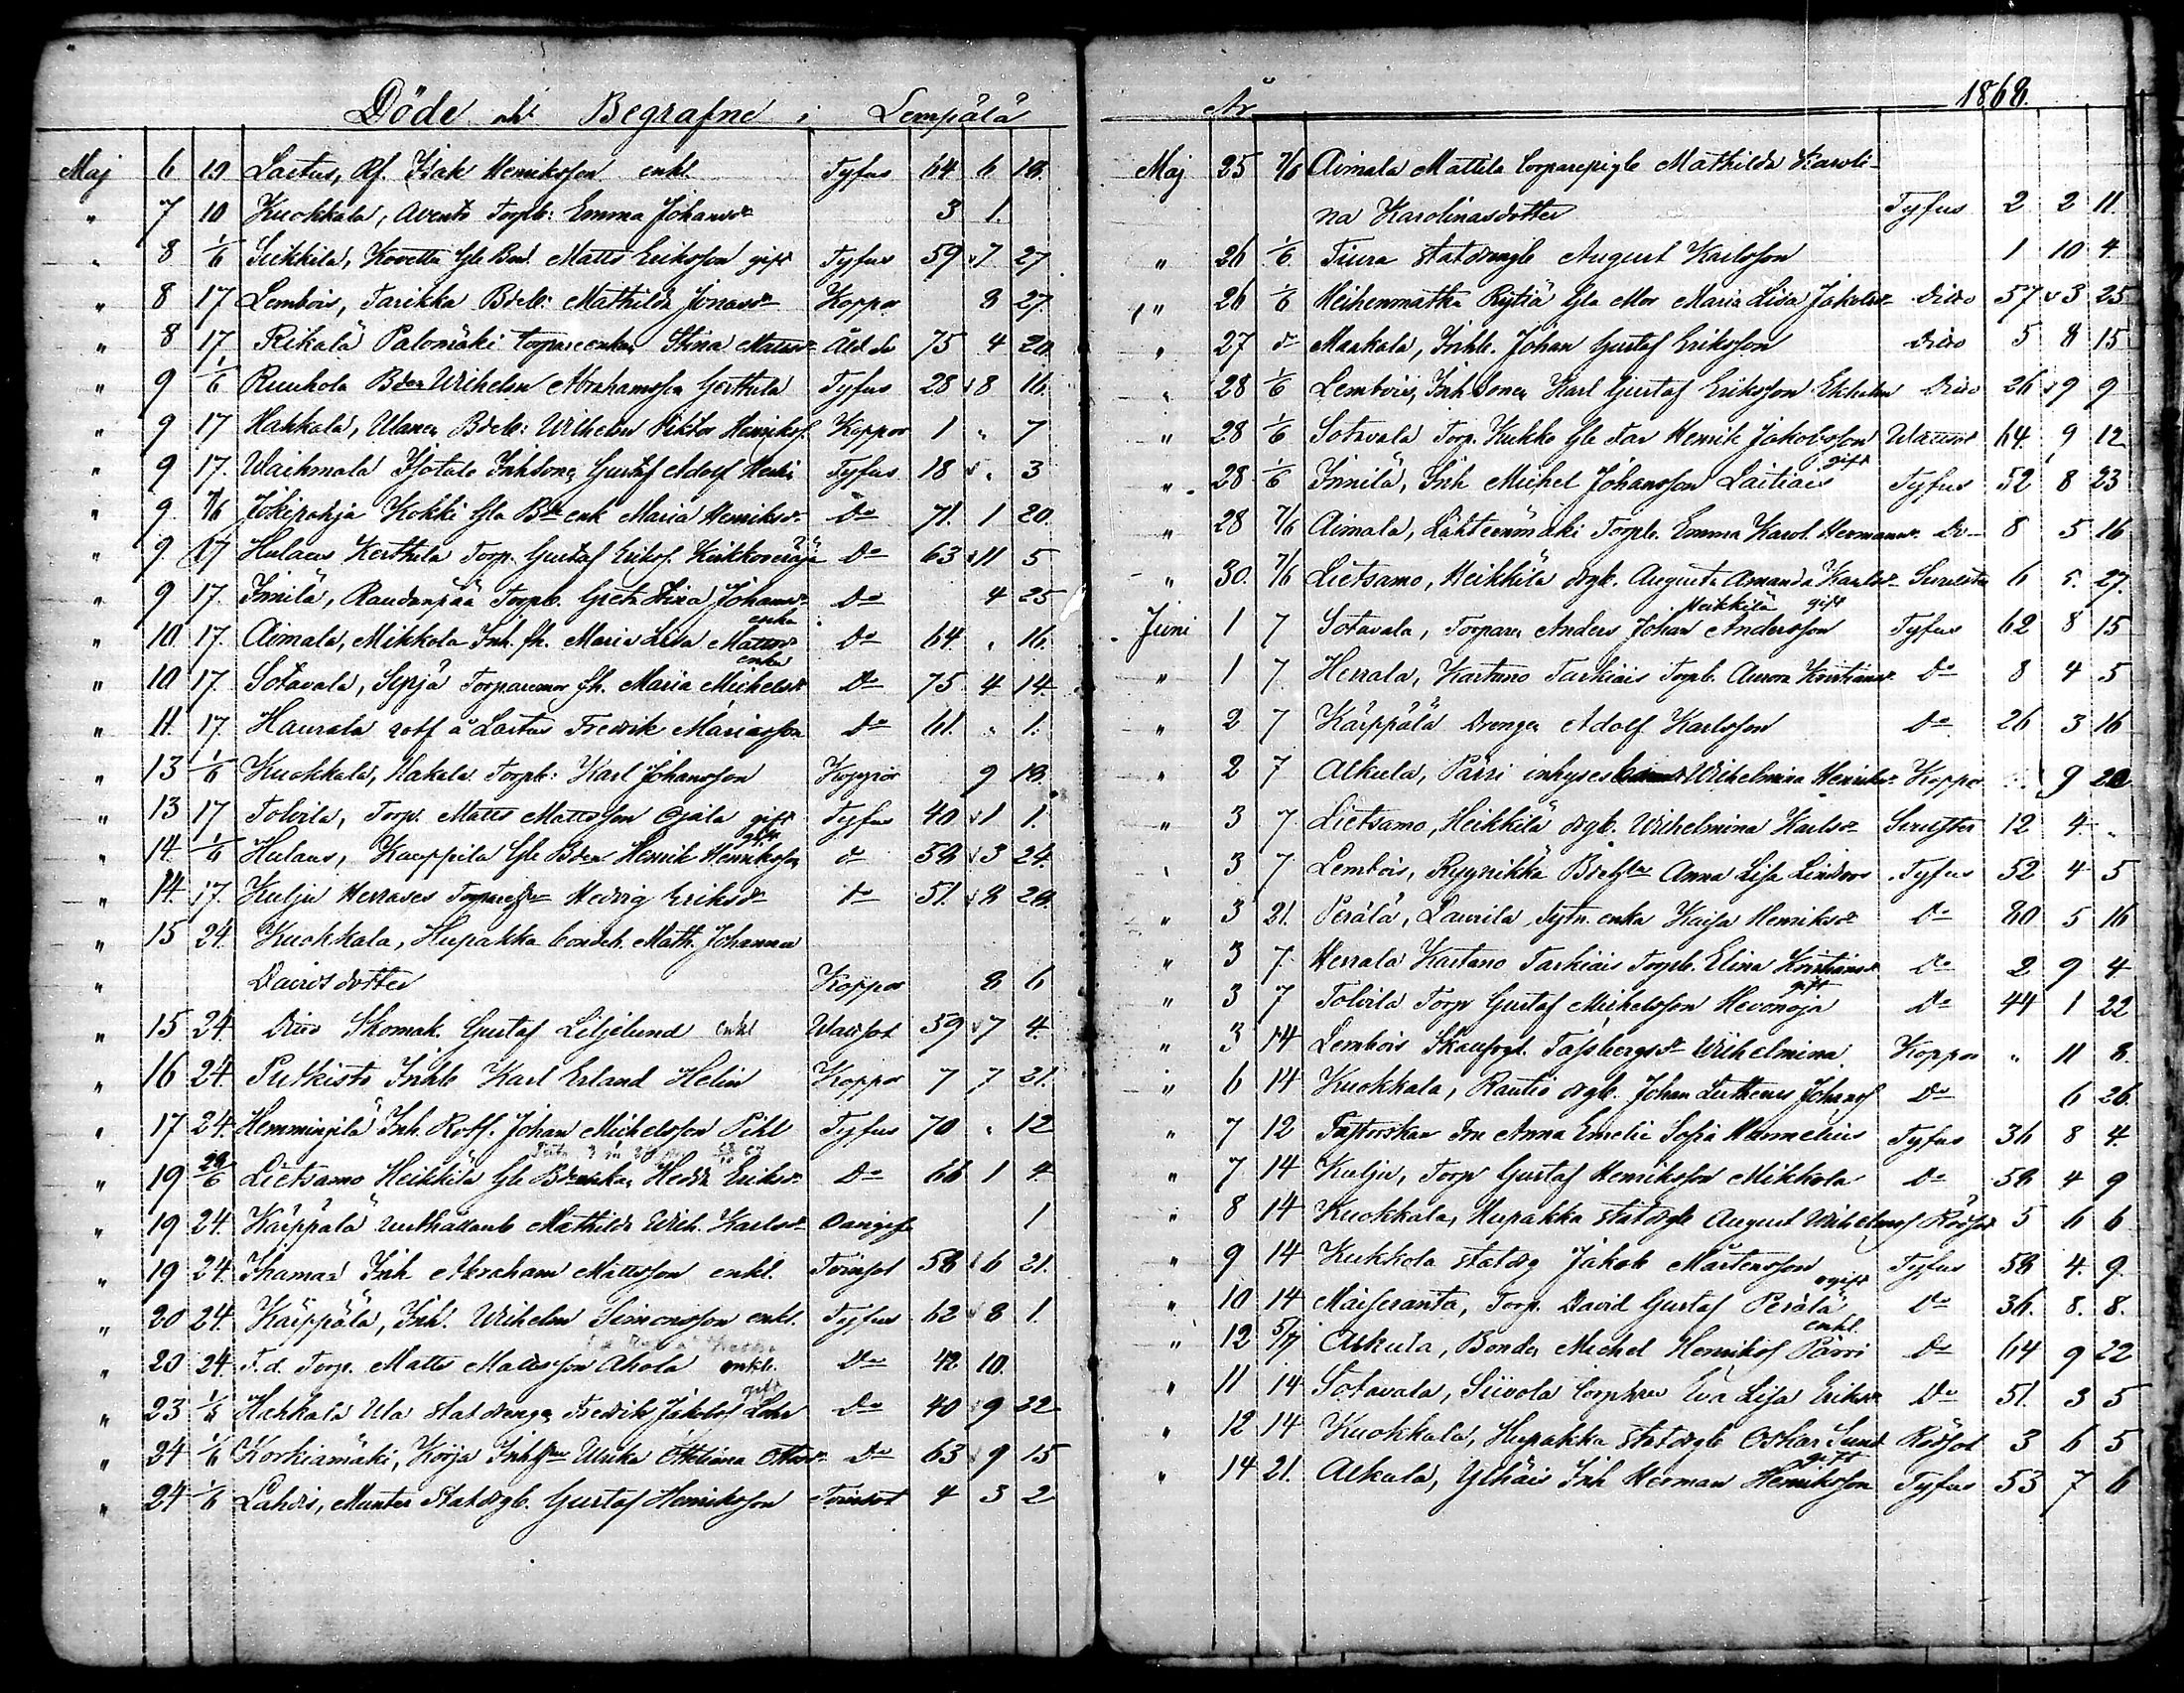 Döde och Begrafne i Lempälä
Maj 6 19 Lastus, Rf. Isak Henriksson enkl. Tyfus 64 6 18.
" 7 10 Kuokkala, Torpb: Emma Johansdr 3 1.
" 8 1/6 Sukkila, Kovetta Gle Bnd. Matts Eriksson gift Tyfus 59 7 27
" 8 17 Lembois, Tarikka Bdeb: Mathilda Jonasdr Koppor 8 27.
" 8 17 Rikala Palomäki torpareenkan Stina Mattsdr Åld. 75 4 20
" 9 1/6 Ruuhola Bden Wilhelm Abrahamsson Gerthula Tyfus 28 8 16.
" 9 17 Hakkala, Ulanen Bdeb: Wilhelm Viktor Henriksf. Koppor 1 " 7
" 9 17. Waihmala Isotalo Inhsone Gustaf Adolf Tyfus 18 " 3
" 9 7/6 Jokipohja Kokki Gla Bde enk Maria Henriksdr Do 71. 1 20.
" 9 17 Hulaus Kerthula Torp. Gustaf Eriksf. Do 63 11 5
" 9 17. Innilä, Raudanpää Torpb. Greta Stina Johansdr Do 4 25
enka
" 10 17. Aimala, Mikkola Inh. fh. Maria Lisa Mattsdr Do 64. " 16.
enka
" 10 17. Sotavala, Seppä Torparemor fh. Maria Michelsdr Do 75 4 14
" 11. 17. Haurala rotf å Lastus Fredrik Mariasson Do 61. " 1.
" 13 1/6 Kuokkala, Hakala Torpb: Karl Johansson Koppor 9 18.
" 13 17 Tolvila, Torp. Matts Mattsson Ojala gift Tyfus 40 1 1.
gift
" 14. 1/6 Hulaus, Kauppila Gle Bden Henrik Henriksson do 59 3 24.
" 14. 17. Kulju Herrases Hedvig Eriksdr do 51. 8 20.
" 15 24. Kuokkala, Hupakka Math. Johanna
" Davidsdotter Koppor 8 6
" 15 24 Dito Skomak. Gustaf Liljelund enkl Wattsot 59 7 4.
" 16 24 Putkisto Inhb Karl Erland Helin Koppor 7 7 21.
" 17 24. Hemmingilä Inh. Rotf. Johan Michelsson Pihl Tyfus 70 " 12
" 19 28/6 Lietsamo Heikkilä Gle Hedda Eriksdr Do 66 1 4.
" 19 24. Käppälä Mathilda Wilh. Karlsdr Oangif. 1
" 19 24. Inh Abraham Mattsson enkl. Tvinsot 58 6 21.
" 20 24. Käppälä, Inh. Wilhelm Simonsson enkl. Tyfus 62 8 1.
" 20 24. F.d. Torp. Matts Mattsson Ahola enkl. Do 42 10.
gift
" 23 1/6 Hakkala Ula statdrenge Fredrik Jakobsf Lehr Do 40 9 22
" 24 1/6 Korkiamäki, Korja Ulrika Ottiliana Ottosdr Do 63 9 15
" 24 1/6 Lahdis, Munter Statdrgb. Gustaf Henriksson Tvinsot 4 3 2
År 1868.
Maj 25 7/6 Aimala Mattila torparepigb Mathilda Karoli-
na Karolinasdotter Tyfus 2 2 11.
" 26 1/6 Tiura statdrengb August Karlsson 1 10 4.
" 26 1/6 Meihenmatka Rytiä Gla Mor Maria Lisa Jakobsdr Dito 57 3 25
" 27 do Maakala, Inhb. Johan Gustaf Eriksson Dito 5 8 15
" 28 1/6 Lembois, Inhsonen Karl Gustaf Eriksson Ekholm Dito 26 9 9
" 28 1/6 Sotavala Torp. Kukko Gle Far Henrik Jakobsson Wattsot 64. 9 12
gift
" 28 1/6 Innilä, Inh Michel Johansson Laitiais Tyfus 52 8 23
" 28 7/6 Aimala, Lähteenmäki Torpb. Emma Karol. Hermansdr Do 8 5 16
" 30. 7/6 Lietsamo, Heikkilä drgb. Augusta Amanda Karlsdr 6 5. 27.
Heikkilä gift
Juni 1 7 Sotavala, Torparen Anders Johan Andersson Tyfus 62 8 15
" 1 7 Herrala, Kartano Tarkiais Torpb. Aurora Kristiansdr Do 8 4 5
" 2 7 Käppälä Drengen Adolf Karlsson Do 26 3 16
" 2 7 Alkula, Pärri inhyses Wilhelmina Henriksdr Koppor 9 20
" 3 7 Lietsamo, Heikkilä drgb. Wilhelmina Karlsdr 12 4. "
" 3 7 Lembois, Ryynikkä Anna Lisa Lindroos Tyfus 52 4 5
" 3 21. Perälä, Laurila enka Kaisa Henriksdr Do 80 5 16
" 3 7 Herrala Kartano Tarkiais Torpb. Elina Kristiansdr Do 2 9 4
gift
" 3 7 Tolvila Torp Gustaf Michelsson Hevonoja Do 44 1 22
" 3 14 Lembois Wilhelmina Koppor " 11 8.
" 6 14 Kuokkala, Rautio drgb. Johan Johansf Do 6 26.
" 7 12 Pastorskan Fru Anna Emelie Sofia Tyfus 36 8 4.
" 7 14 Kulju, Torp Gustaf Henriksson Mikkola Do 58 4 9
" 8 14 Kuokkala, Hupakka statdrgb August Wilhelmsf Rödsot 5 6 6
" 9 14 Kukkola statdrg Jakob Mårtensson Tyfus 58 4. 9.
ogift
" 10 14 Maiseranta, Torp. David Gustaf Perälä Do 36. 8. 8.
enkl.
" 12 5/7 Alkula, Bonden Michel Henriksf Pärri Do 64 9 22
" 11 14 Sotavala, Siivola Eva Lisa Eriksdr Do 51. 3 5
" 12 14 Kuokkala, Hupakka statdrgb Oskar Sund Rödsot 3 6 5
gift
" 14 21. Alkula, Ylhäis Inh Herman Henriksson Tyfus 53 7 6